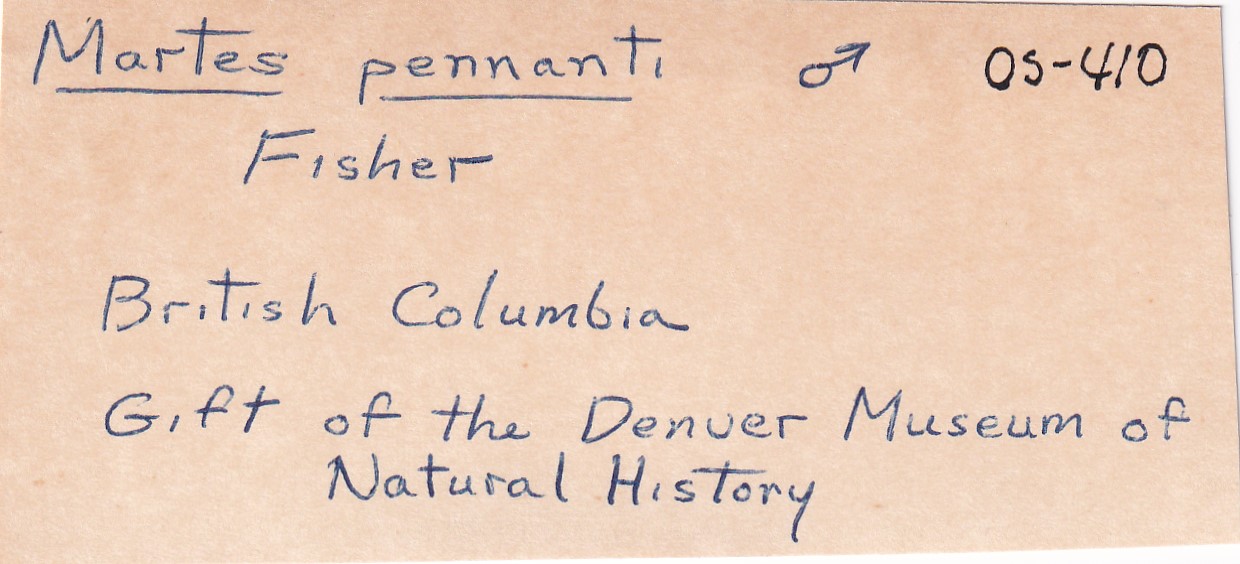 Martes pennanti ♂ OS-410
Fisher
British Columbia
Gift of the Denver Museum of
Natural History